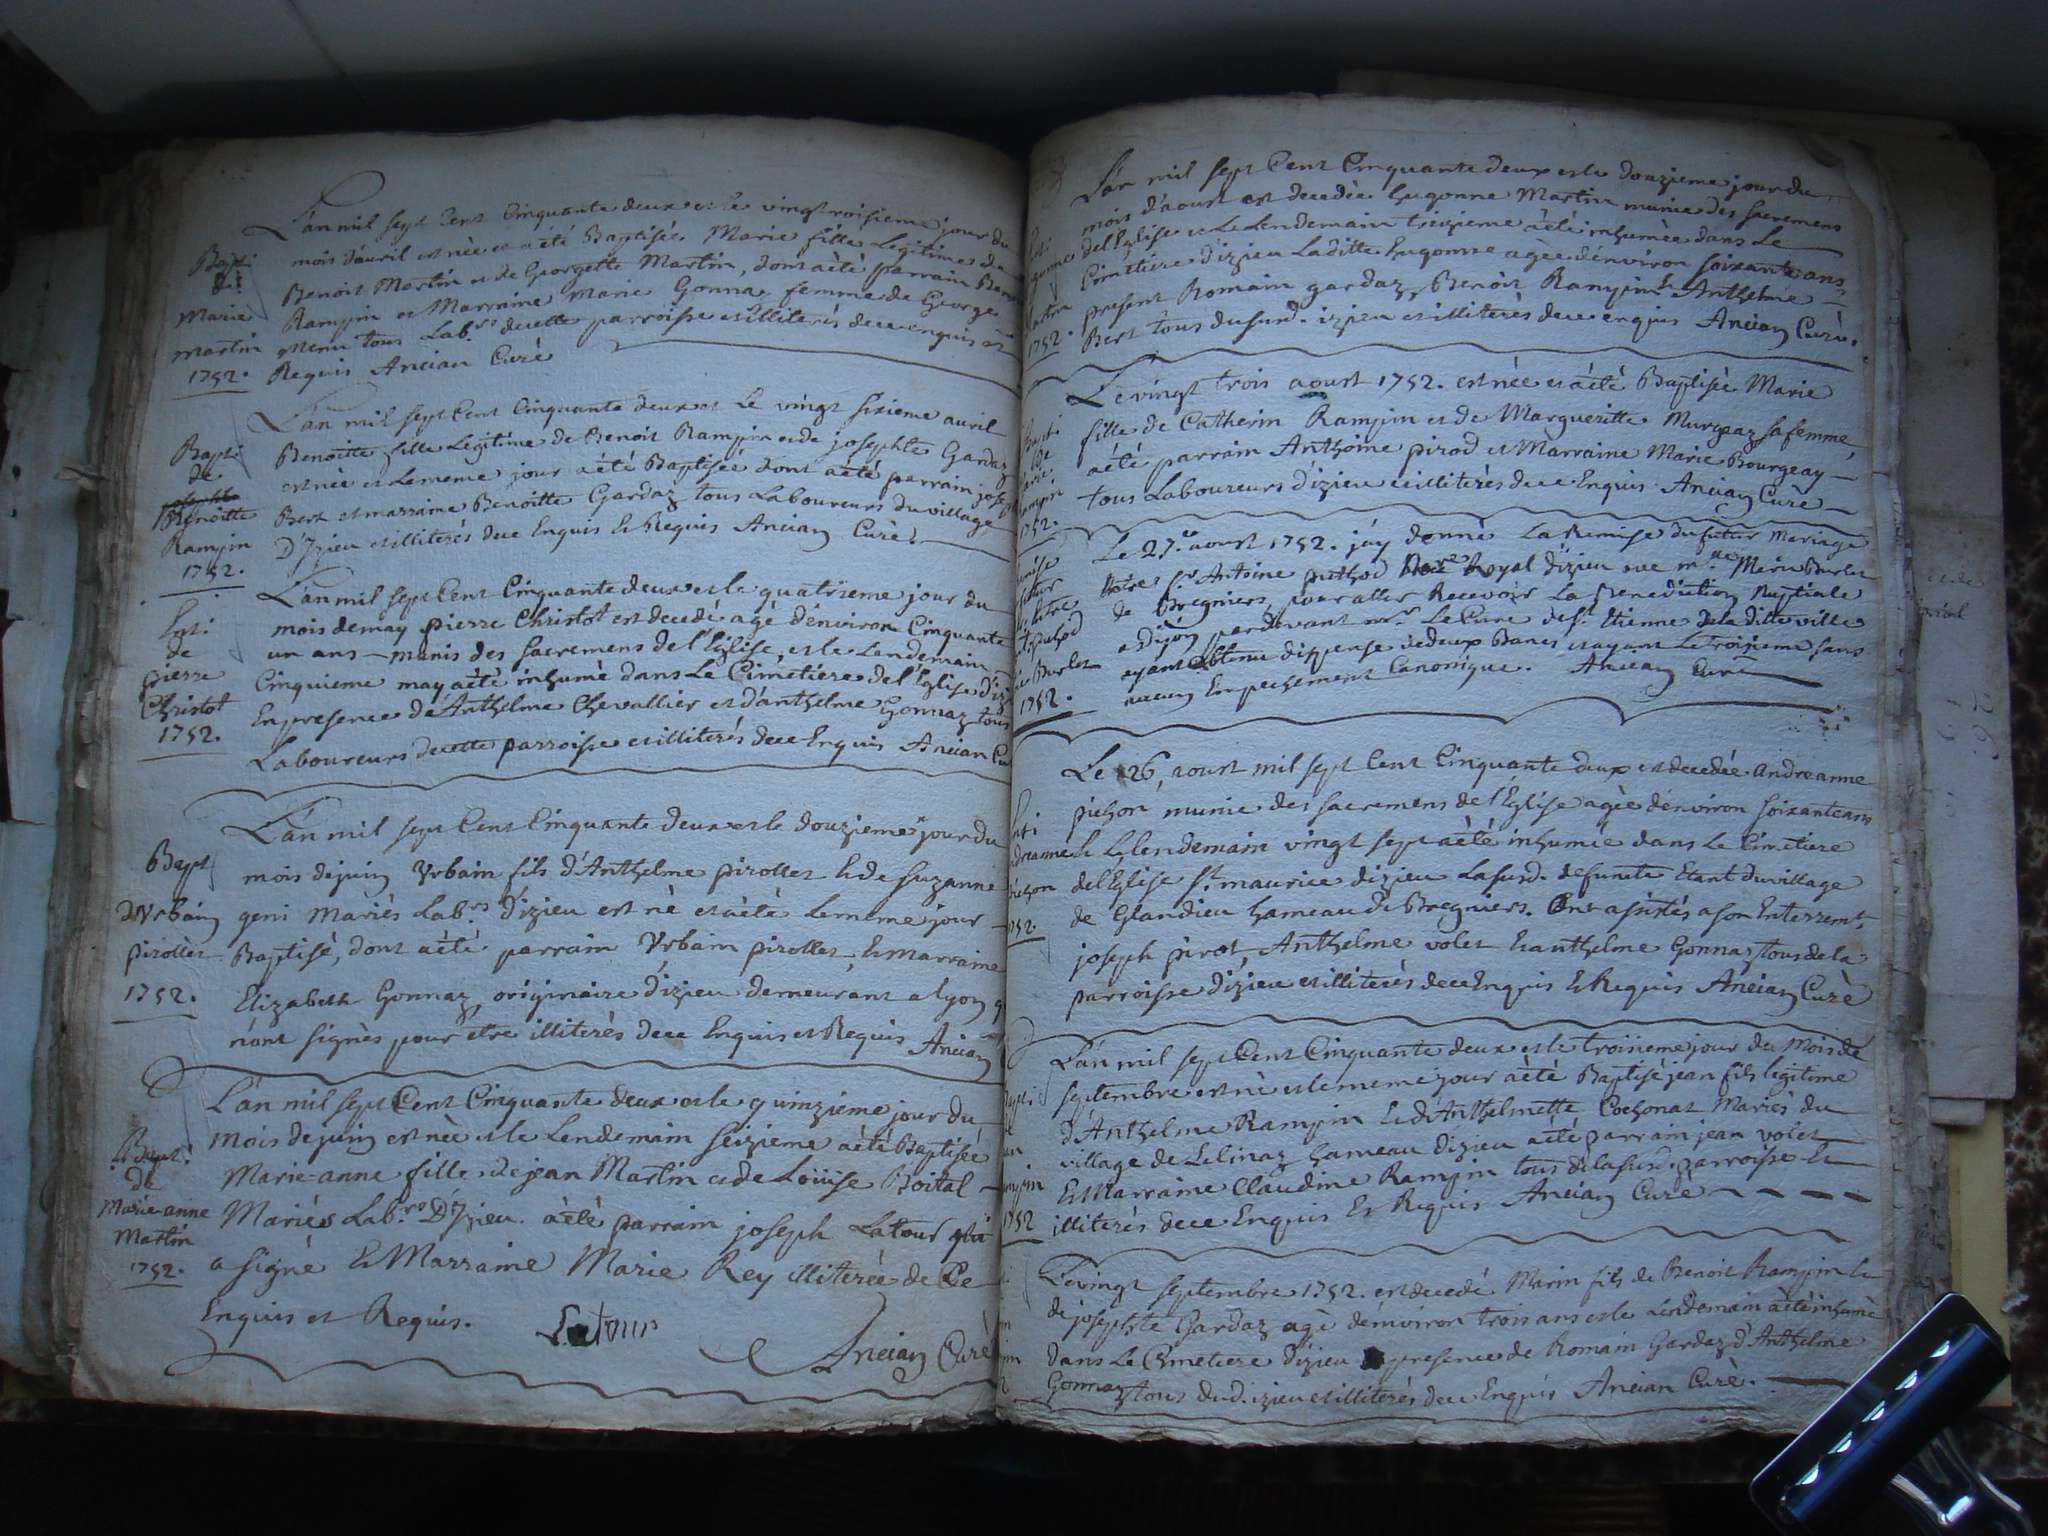 L'an mil sept Cent Cinquante deux et le vingt roisieme jour du
mois d'avril est née et a été Baptisée Marie fille Legitime de
Benoit Martin et de Georgette Martin, dont a été parrain Benoit
Rampin et Marraine Marie Gonnaz femme de George
menu tous Lab.rs decette parroisse et illiterés dece enquis et
Requis Ancian Curé
Bapt:
de
Marie
Martin
1752.
L'an mil sept Cent Cinquante deux et Le vingt sixieme avril
Benoitte fille Legitime de Benoit Rampin et de josephte Gardaz
est née et Lememe jour a été Baptisée dont a été parrain joseph
Bert et marraine Benoitte Gardaz tous Laboureurs du village
D'Izieu et illiterés dece Enquis et Requis Ancian Curé.
Bapt:
de
Benoitte
Rampin
1752.
L'an mil sept Cent Cinquante deux et le quatrieme jour du
mois de may pierre Christot est decedé agé d'environ Cinquante
un ans munis des sacremens de l'Eglise, et le Lendemain
Cinquieme may a été inhumé dans Le Cimetiere de l'Eglise d'izieu
En presence de Anthelme Chevallier et d'anthelme Gonnaz tous
Laboureurs decette parroisse et illiterés dece Enquis Ancian Cu
de
pierre
Christot
1752.
L'an mil sept Cent Cinquante deux et le douzieme jour du
mois de juin Urbain fils d'Anthelme pirollet et de Suzanne
geni Mariés Lab.rs d'izieu est né et a été Lememe jour
Baptisé, dont a été parrain Urbain pirollet, et Marraine
Elizabeth Gonnaz originaire d'izieu demeurant a lyon q
n'ont signés pour etre illiterés dece Enquis et Requis Ancian
Bapt
d'Urbain
pirollet
1752.
L'an mil sept Cent Cinquante deux et le quinzieme jour du
Mois de juin est née et le Lendemain seizieme a été Baptisée
Marie-anne fille de jean Martin et de Loüise Boital
Mariés Lab.rs D'Izieu. a été parrain joseph Latour qui
a signé et Marraine Marie Rey illiterée de Ce
Enquis et Requis.
Latour
Ancian Curé
Bapt:
de
Marie-anne
Martin
1752.
L'an mil sept Cent Cinquante deux et le douzieme jour du
mois d'aoust est decedée hugonne Martin munie des sacremens
de l'Eglise et Le Lendemain treizieme a été inhumée dans Le
Cimetiere d'izieu Laditte hugonne agée d'environ soixante ans,
present Romain gardaz, Benoit Rampin et Anthelme
Bert tous dususd. izieu et illiterés dece enquis Ancian Curé.
1752.
Le vingt trois aoust 1752. est née et a été Baptisée Marie
fille de Catherin Rampin et de Margueritte Murgeaz sa femme,
a été parrain Anthoine pirod et Marraine Marie Bourgeay
tous Laboureurs d'izieu et illiterés dece Enquis. Ancian Curé
1752.
Le 27.e aoust 1752. j'ay donné La Remise du futur Mariage
entre Sr Antoine puthod Royal d'izieu avec Burlet
de Bregniers, pour aller Recevoir La Benediction Nuptiale
a Dijon pardevant mr. Le Curé de St. Etienne dela ditte ville
ayant obtenu dispense de deux Bancs et ayant Le troisieme sans
aucun Empechement Canonique. Ancian Curé
Burlet
1752.
Le 26, aoust mil sept Cent Cinquante deux est decedée andreanne
pichon munie des sacremens de l'Eglise agée d'environ soixante ans
et Le lendemain vingt sept a été inhumée dans Le Cimetiere
de l'Eglise St. maurice d'izieu Lasusd. defuncte Etant du village
de Glandieu hameau de Bregniers. Ont assistés a son Enterremt,
joseph pirot, Anthelme volet et anthelme Gonnaz tous dela
parroisse d'izieu et illiterés dece Enquis et Requis Ancian Curé
L'an mil sept Cent Cinquante deux et le troisieme jour du Mois de
septembre est né et le meme jour a été Baptisé jean fils legitime
d'Anthelme Rampin et d'Anthelmette Cochonat Mariés du
village de Lelinaz hameau d'izieu a été parrain jean volet
et Marraine Claudine Rampin tous de lasusd. parroisse et
illiterés dece Enquis et Requis Ancian Curé
1752
Le vingt septembre 1752. est decedé Marin fils de Benoit Rampin et
de josephte Gardaz agé d'environ trois ans et le Lendemain a été inhumé
dans Le Cimetiere d'izieu presence de Romain Gardaz d'Anthelme
Gonnaz tous dud. izieu et illiterés dece Enquis Ancian Curé.